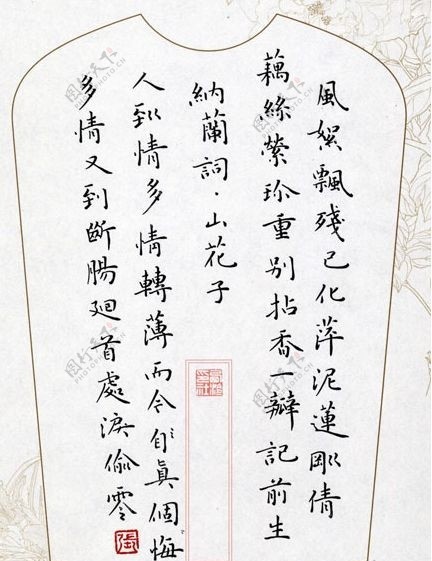 風絮飄殘已化萍泥蓮剛倩
藕絲縈珍重別拈香一瓣記前生
納蘭詞·山花子
人到情多情轉薄而今自眞個悔
多情又到斷腸廻首處淚偷零